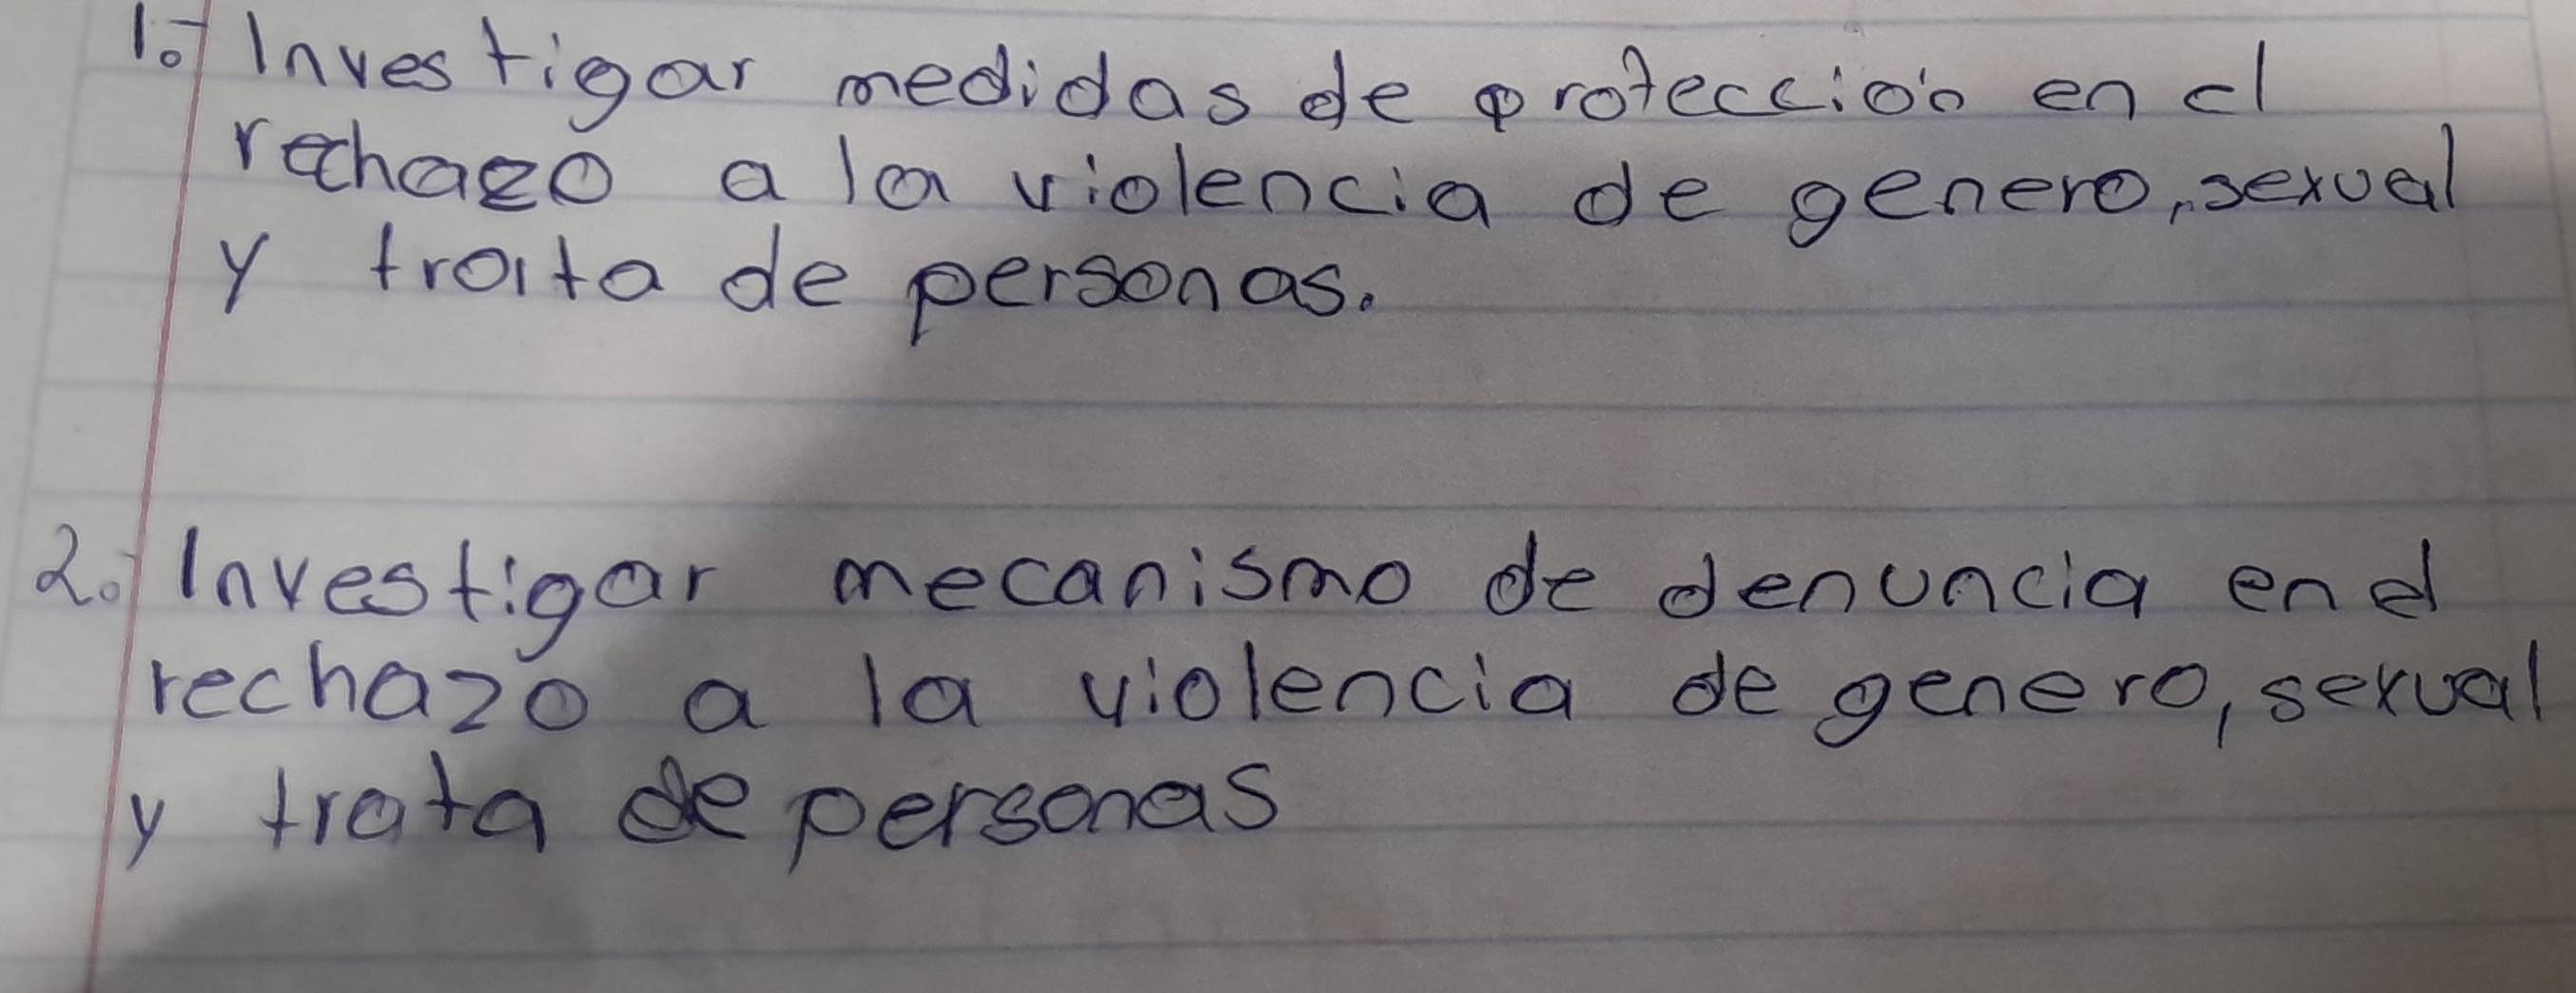 1.- Investigar medidas de protección en el
rechazo a la violencia de genero, sexual
y trata de personas.
2. Investigar mecanismo de denuncia en el
rechazo a la violencia de genero, sexual
y trata de personas